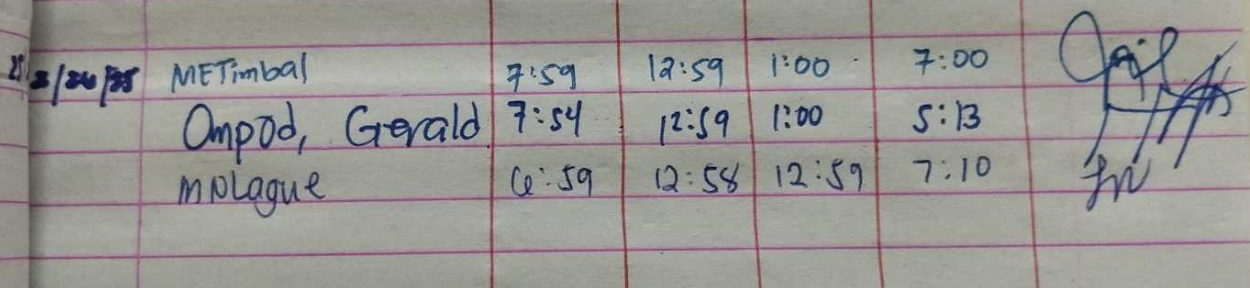 METimbal 7:59 12:59 1:00 7:00
Ompod, Gerald 7:54 12:59 1:00 5:13
MNLague 6:59 12:58 12:59 7:10